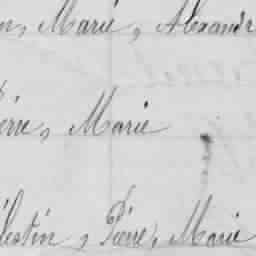 n, Marie, Alexandr
ierre, Marie
élestin, Pierre, Marie